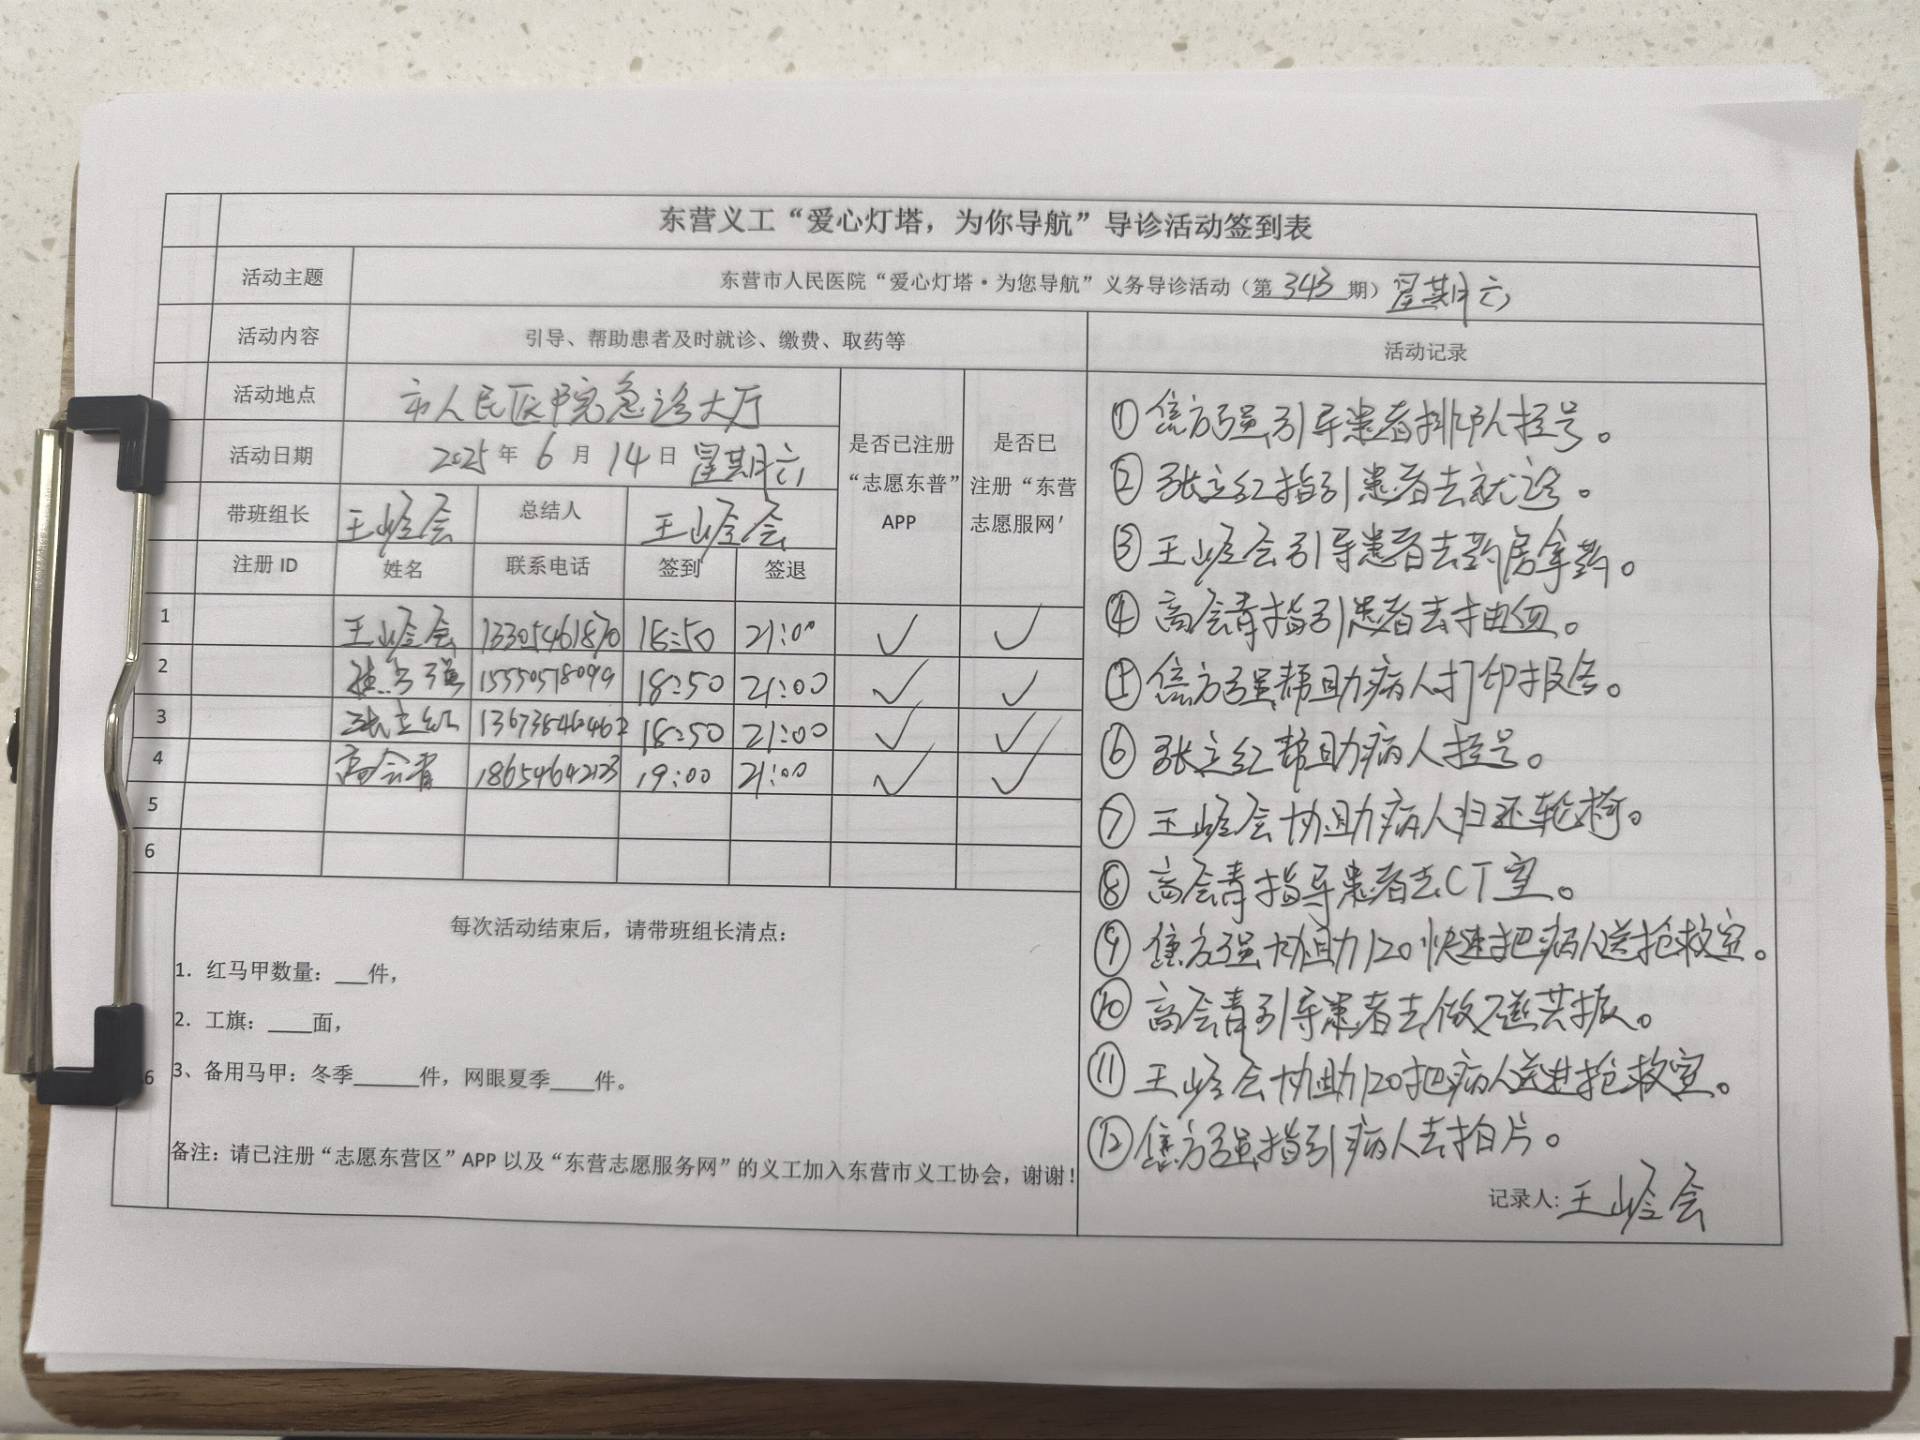 东营义工“爱心灯塔，为你导航”导诊活动签到表
活动主题 东营市人民医院“爱心灯塔·为您导航”义务导诊活动（第 343 期）星期六
活动内容 引导、帮助患者及时就诊、缴费、取药等 活动记录
活动地点 市人民医院急诊大厅
活动日期 2025年 6月 14日 星期六
是否已注册“志愿东普”APP
是否已注册“东营志愿服网’
带班组长 王峰会 总结人 王峰会
注册 ID 姓名 联系电话 签到 签退
1 王峰会 13305461870 18:50 21:00 ✓ ✓
2 强 15550518099 18:50 21:00 ✓ ✓
3 张立红 18:50 21:00 ✓ ✓
4 高会青 18654642123 19:00 21:00 ✓ ✓
5
6
每次活动结束后，请带班组长清点：
1. 红马甲数量：___件，
2. 工旗：____面，
6 3、备用马甲：冬季______件，网眼夏季____件。
备注：请已注册“志愿东营区”APP 以及“东营志愿服务网”的义工加入东营市义工协会，谢谢！
① 焦方强引导患者排队挂号。
② 张立红指引患者去就诊。
③ 王峰会引导患者去药房拿药。
④ 高会青指引患者去抽血。
⑤ 焦方强帮助病人打印报告。
⑥ 张立红帮助病人挂号。
⑦ 王峰会协助病人归还轮椅。
⑧ 高会青指导患者去CT室。
⑨ 焦方强协助120快速把病人送抢救室。
⑩ 高会青引导患者去做磁共振。
⑪ 王峰会协助120把病人送进抢救室。
⑫ 焦方强指引病人去拍片。
记录人：王峰会